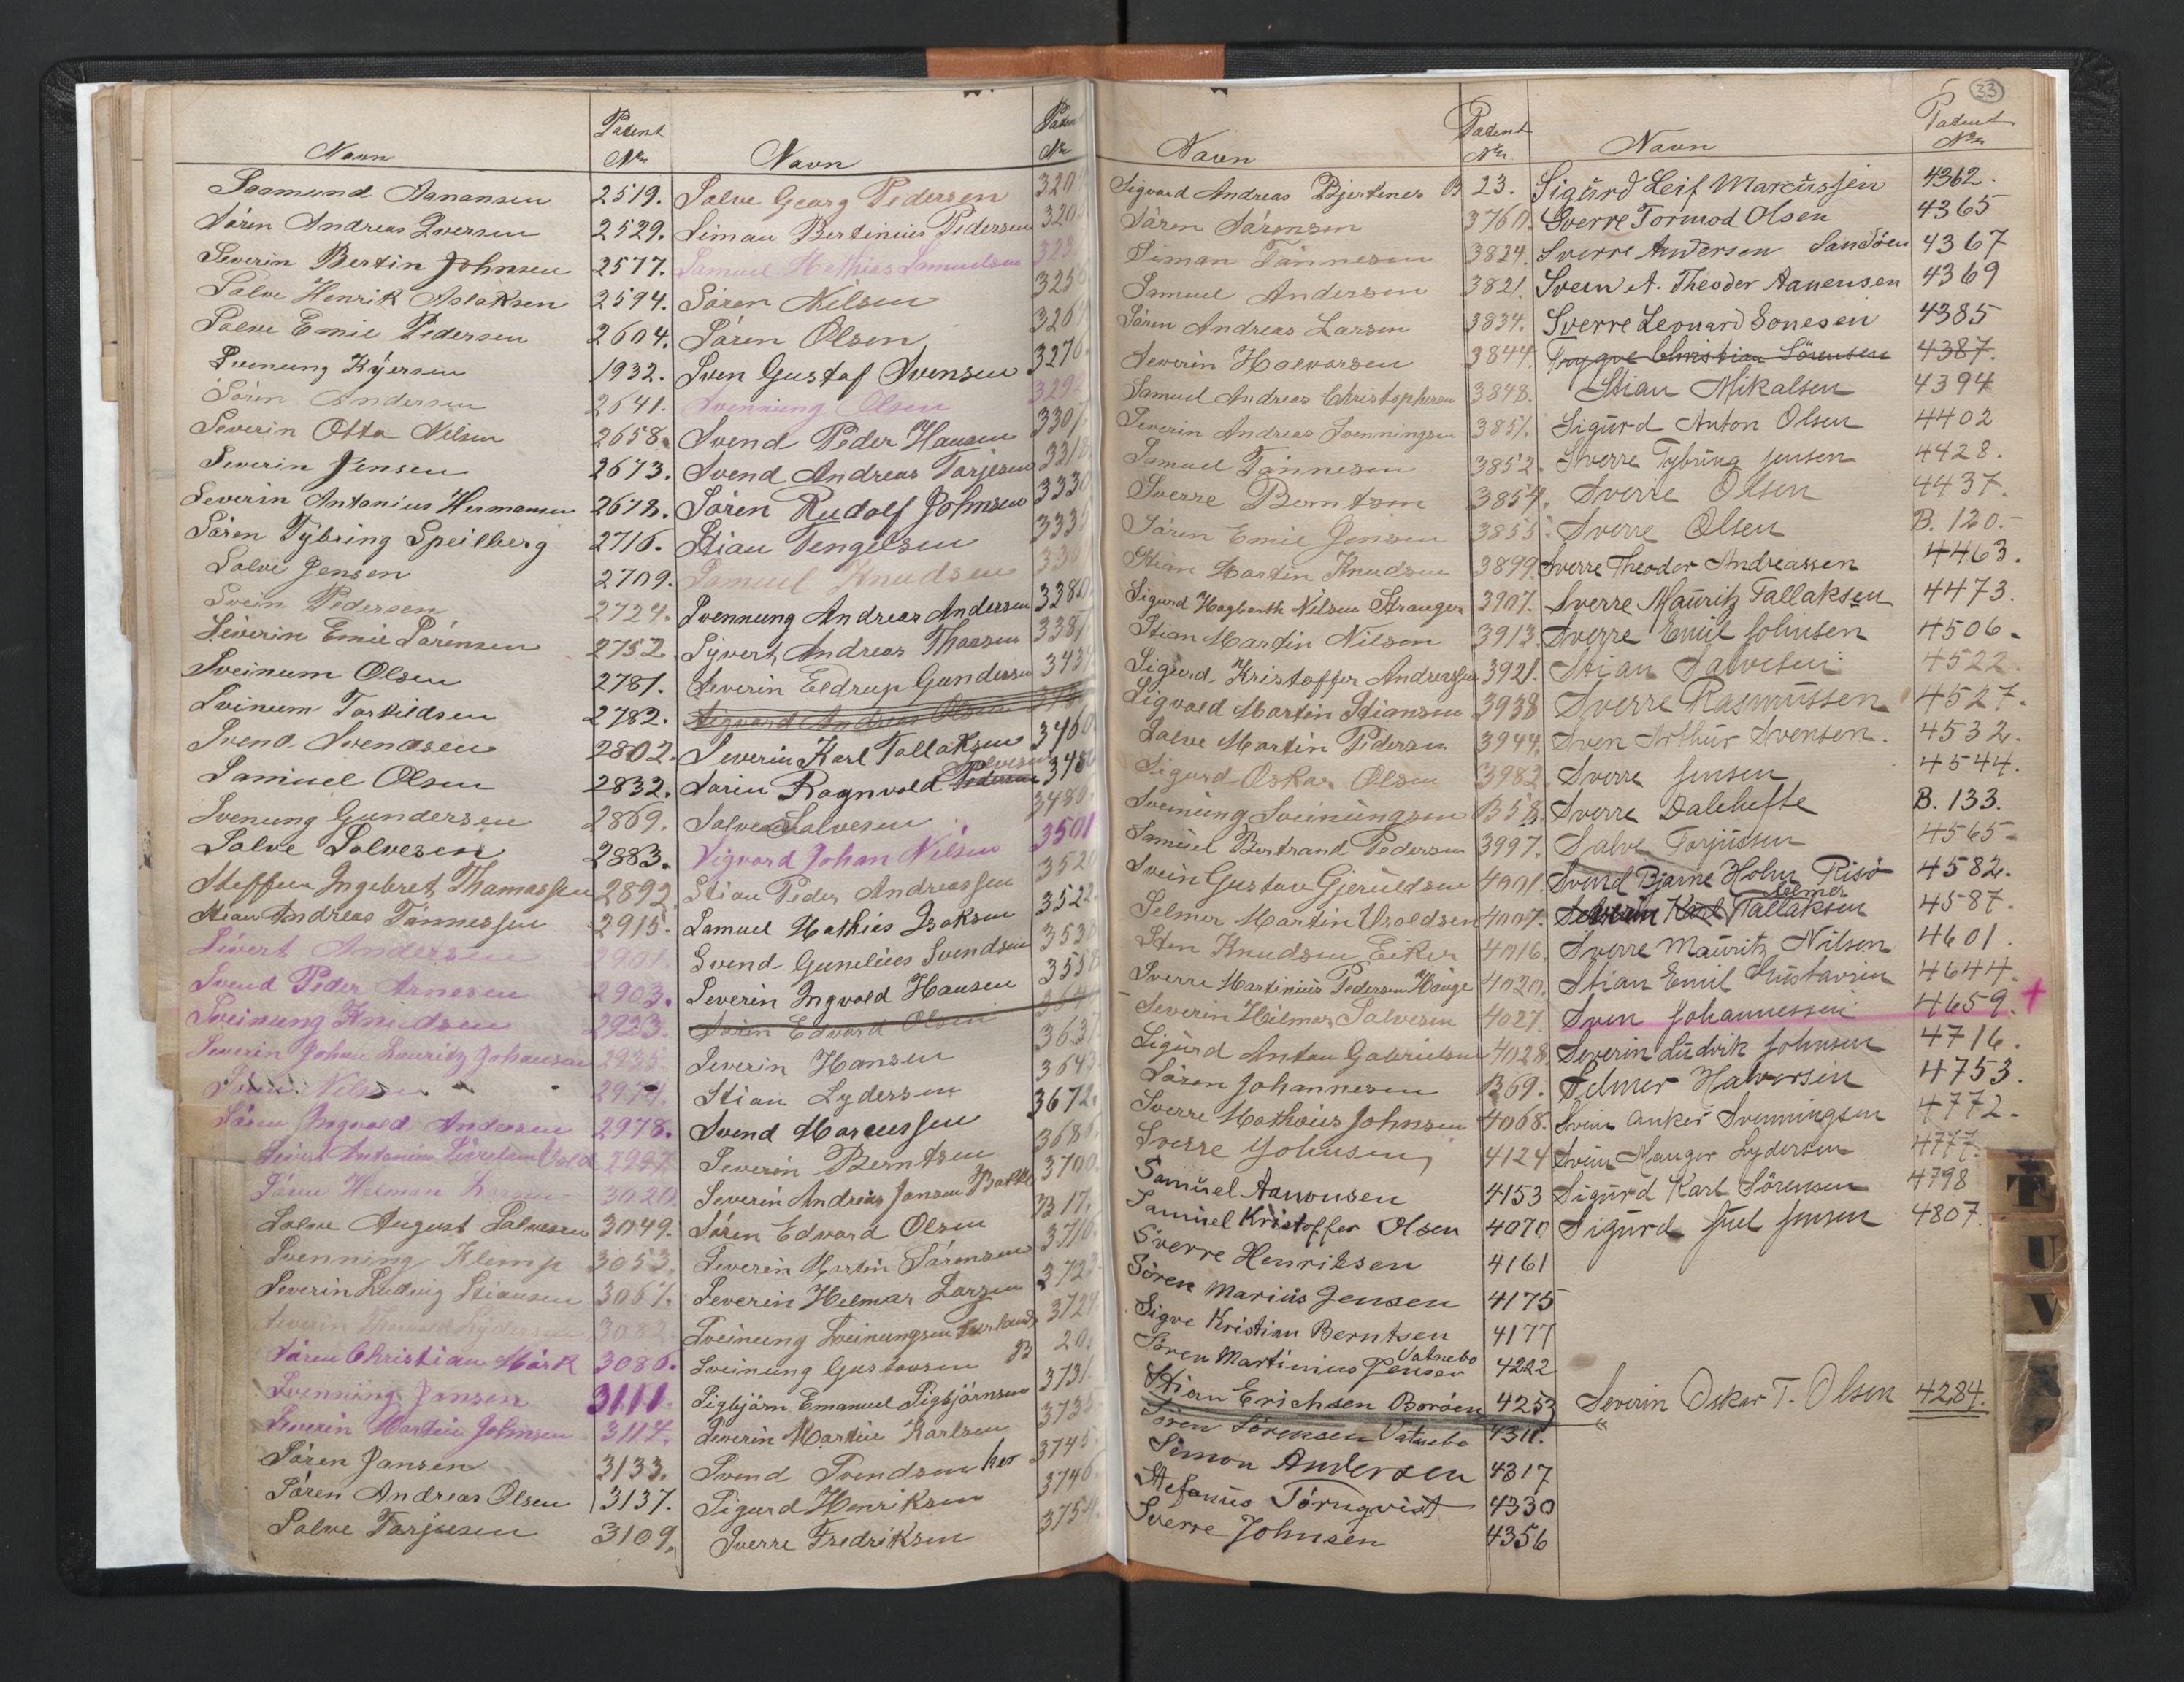 Navn Patent Nr.
Saamund Aanansen 2519.
Søren Andreas Iversen 2529.
Severin Bertin Johnsen 2577.
Salve Henrik Aslaksen 2594.
Salve Emil Pedersen 2604.
Svenung Kjersen 1932.
Søren Andersen 2641.
Severin Otto Nilsen 2658.
Severin Jensen 2673.
Severin Antonius Hermansen 2678.
Søren Tybring Speilberg 2716.
Salve Jensen 2709.
Svein Pedersen 2724.
Severin Emil Sørensen 2752
Sveinum Olsen 2781.
Sveinum Torkildsen 2782.
Svend Svendsen 2802.
Samuel Olsen 2832.
Svenung Gundersen 2869.
Salve Salvesen 2883.
Steffen Ingebret Thomassen 2892
Stian Andreas Tønnessen 2915.
Sivert Andersen 2901.
Svend Peder Arnesen 2903.
Sveinung Knudsen 2923.
Severin Johan Lauritz Johansen 2935.
Nilsen 2974.
Søren Ingvald Andersen 2978.
Sivert Antonius 2997.
Søren Helman 3020.
Salve August Salvesen 3049.
Svenning Klemp 3053.
Severin Ludvig Stiansen 3067.
Severin 3082.
Søren Christian Mørk 3086.
Svenning Jansen 3111.
Severin Martin Johnsen 3114.
Søren Jansen 3133.
Søren Andreas Olsen 3137.
Salve Tarjusen 3109.
Navn Patent Nr
Salve Georg Pedersen
Simon Bertinius Pedersen
Samuel Mathias Samuelsen
Søren Nilsen
Søren Olsen
Sven Gustaf Svensen 3276.
Svenning Olsen
Svend Peder Hansen 3307.
Svend Andreas Tarjesen
Søren Rudolf Johnsen 3330
Stian Tengelsen
Samuel Knudsen
Svennung Andreas Andersen 3380
Syvert Andreas Thorsen
Severin Eldrup Gundersen
Sigvard Andreas Olsen
Severin Karl Tallaksen 3460
Salvesen
Sørin Ragnvald Pedersen
Salve Salvesen 3480.
Sigvard Johan Nilsen 3501
Stian Peder Andreassen
Samuel Mathias Isaksen 3522.
Svend Gunelius Svendsen
Severin Ingvald Hansen
Sørin Edvard Olsen
Severin Hansen
Stian Lydersen 3643
Svend Marcussen 3672.
Severin Berntsen
Severin Andreas Jansen Bakke 3700.
Søren Edvard Olsen B 17.
Severin Martin Sørensen 3710.
Severin Helmar Larsen
Sveinung Sveinungsen
Sveinung Gustavsen B 20.
Sigbjørn Emanuel Sigbjørnsen 3731.
Severin Martin Karlsen
Svend Svendsen her 3745.
Sigurd Henriksen 3746.
Sverre Fredriksen 3754.
33
Navn Patent Nr.
Sigvard Andreas Bjertenes B 23.
Søren Sørensen 3760.
Simon Tønnesen 3824.
Samuel Andersen 3821.
Søren Andreas Larsen 3834.
Severin Halvorsen 3844.
Samuel Andreas Christophersen 3848.
Severin Andreas Svenningsen 3851.
Samuel Tønnesen 3852.
Sverre Berntsen 3854.
Søren Emil Jensen 3855.
Stian Martin Knudsen 3899.
Sigurd Hagbarth Nilsen Stranger 3907.
Stian Martin Nilsen 3913.
Sigurd Kristoffer Andreassen 3921.
Sigvald Martin Stiansen 3938
Salve Martin Pedersen 3944.
Sigurd Oskar Olsen 3982.
Sveinung Sveinungsen B 58.
Samuel Bertrand Pedersen 3997.
Svein Gustav Gjeruldsen 4001.
Selmer Martin Uroldsen 4007.
Sten Knudsen Eiker 4016.
Sverre Martinius Pedersen Hauge 4020.
Severin Hilmar Salvesen 4027.
Sigurd Anton Gabrielsen 4028.
Søren Johannesen B69.
Sverre Mathæus Johnsen 4068.
Sverre Johnsen 4124
Samuel Aanonsen 4153
Samuel Kristoffer Olsen 4070
Sverre Henriksen 4161
Søren Marius Jensen 4175
Sigve Kristian Berntsen 4177
Vatnebo
Søren Martinius Jensen 4222
Stian Erichsen Borøen 4253
Søren Sørensen Vatnebo 4311.
Simon Andersen 4317
Stefanus Törnqvist 4330
Sverre Johnsen 4356
Navn Patent Nr.
Sigurd Leif Marcussen 4362.
Sverre Tormod Olsen 4365
Sverre Andersen Sandøen 4367
Svein A. Theodor Aanensen 4369
Sverre Leonard Sonesen 4385
Trygve Christian Sørensen 4387.
Stian Mikalsen 4394
Sigurd Anton Olsen 4402
Sverre Tybring Jensen 4428.
Sverre Olsen 4437.
Sverre Olsen B. 120.-
Sverre Theodor Andreassen 4463.
Sverre Mauritz Tallaksen 4473.
Sverre Emil Johnsen 4506.
Stian Salvesen 4522.
Sverre Rasmussen 4527.
Sven Arthur Svensen. 4532.
Sverre Jensen 4544.
Sverre Dalehefte B. 133.
Salve Torjussen 4565
Svend Bjarne Holm Risö 4582.
Selmer
Severin Karl Tallaksen 4587.
Sverre Mauritz Nilsen 4601.
Stian Emil Gustavsen 4644.
Sven Johannessen 4659. +
Severin Ludvik Johnsen 4716.
Selmer Halvorsen 4753.
Svein Anker Svenningsen 4772.
Svein Mangor Lydersen 4777.
Sigurd Karl Sörensen 4798
Sigurd Juel Jensen 4807.
Severin Oskar T. Olsen 4284.
T
U
V